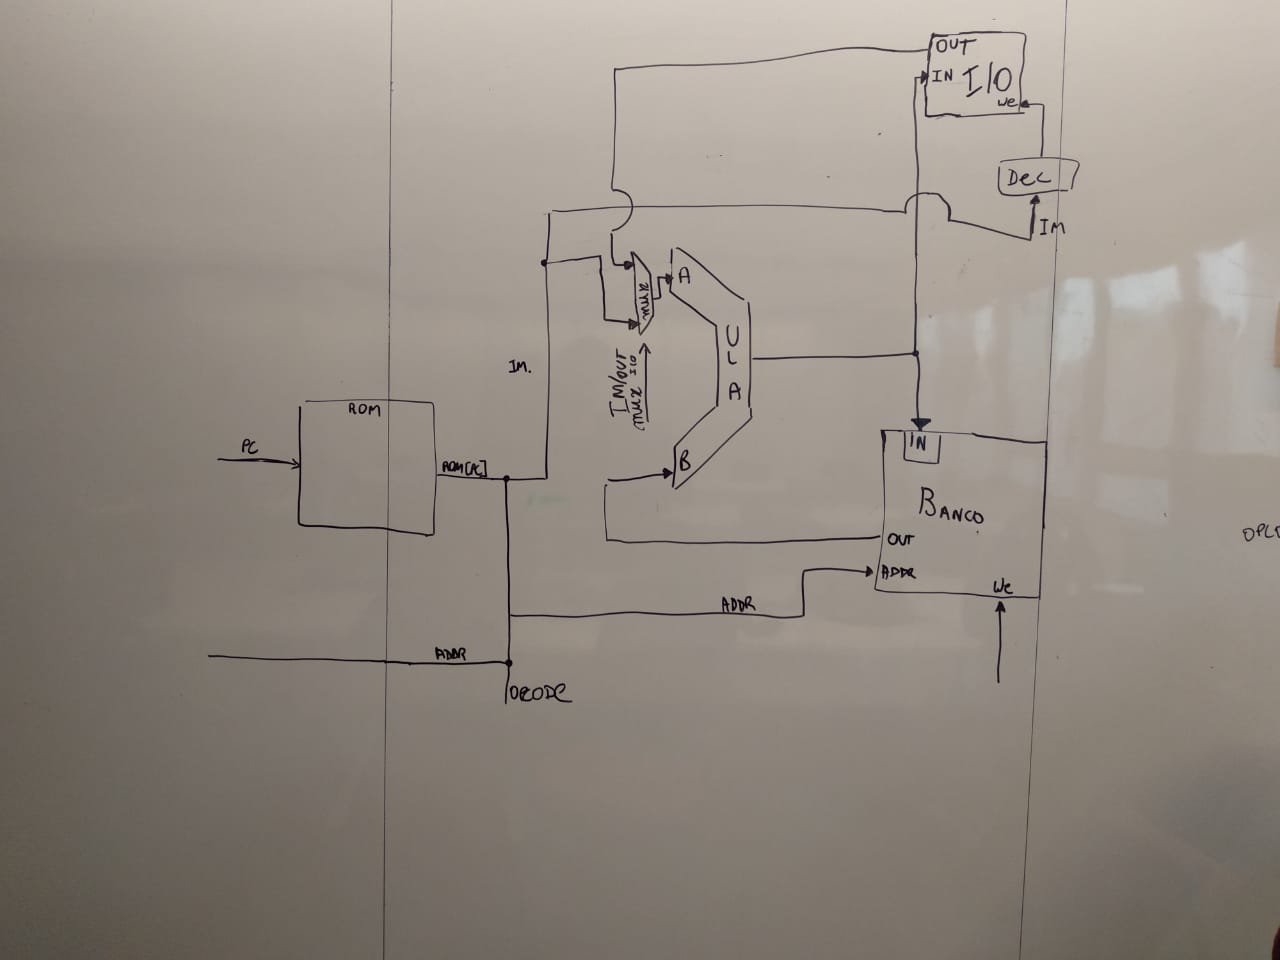 OUT
IN I/O
We
Dec
IM
A
mux
IM.
IM/OUT
mux I/O
U
L
A
ROM
PC
ROM[PC]
B
IN
BANCO
OUT
ADDR
We
ADDR
ADDR
OPCODE